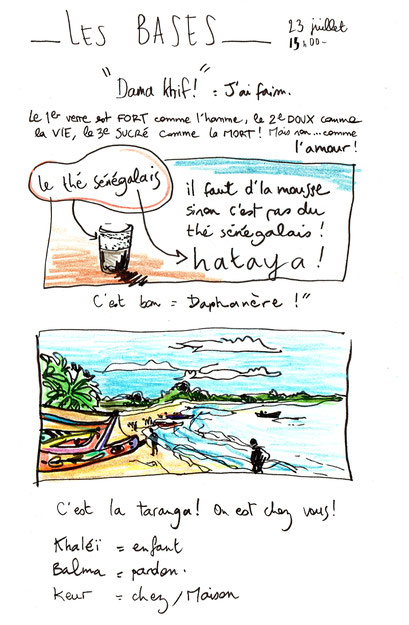 LES BASES
23 juillet
13h00-
"Dama khif! = J'ai faim.
Le 1er verre est FORT comme l'homme, le 2e DOUX comme
la VIE, le 3e SUCRÉ comme la MORT! Mais non... comme
l'amour!
le thé sénégalais
il faut d'la mousse
sinon c'est pas du
thé sénégalais!
hataya!
C'est bon = Daphanère !"
C'est la taranga! On est chez vous!
Khaléï = enfant
Balma = pardon.
Keur = chez/Maison